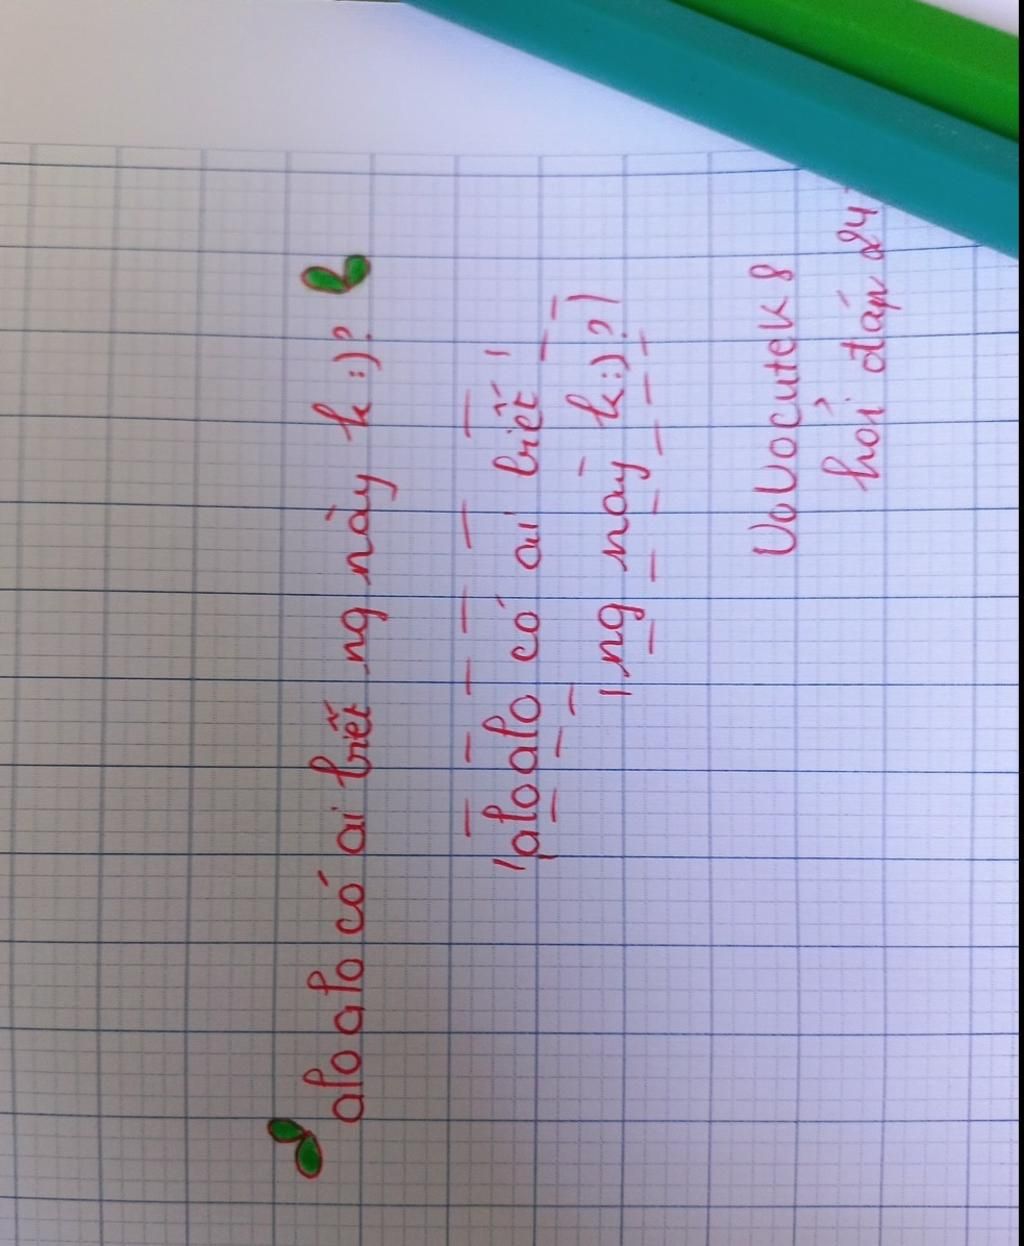 alo alo có ai biết ng này k :)?
alo alo có ai biết
ng này k :)?
UoUocutek8
hỏi đáp 24